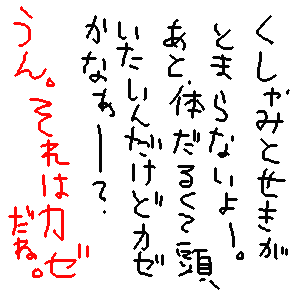 くしゃみとせきが
とまらないよー。
あと、体だるくて頭、
いたいんだけどカゼ
かなぁー？
うん。それはカゼ
だね。